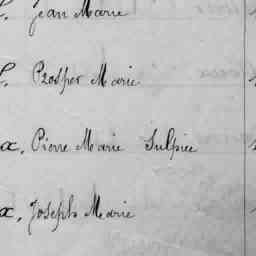 Jean Marie
Prosper Marie
x, Pierre Marie Sulpice
x, Joseph Marie